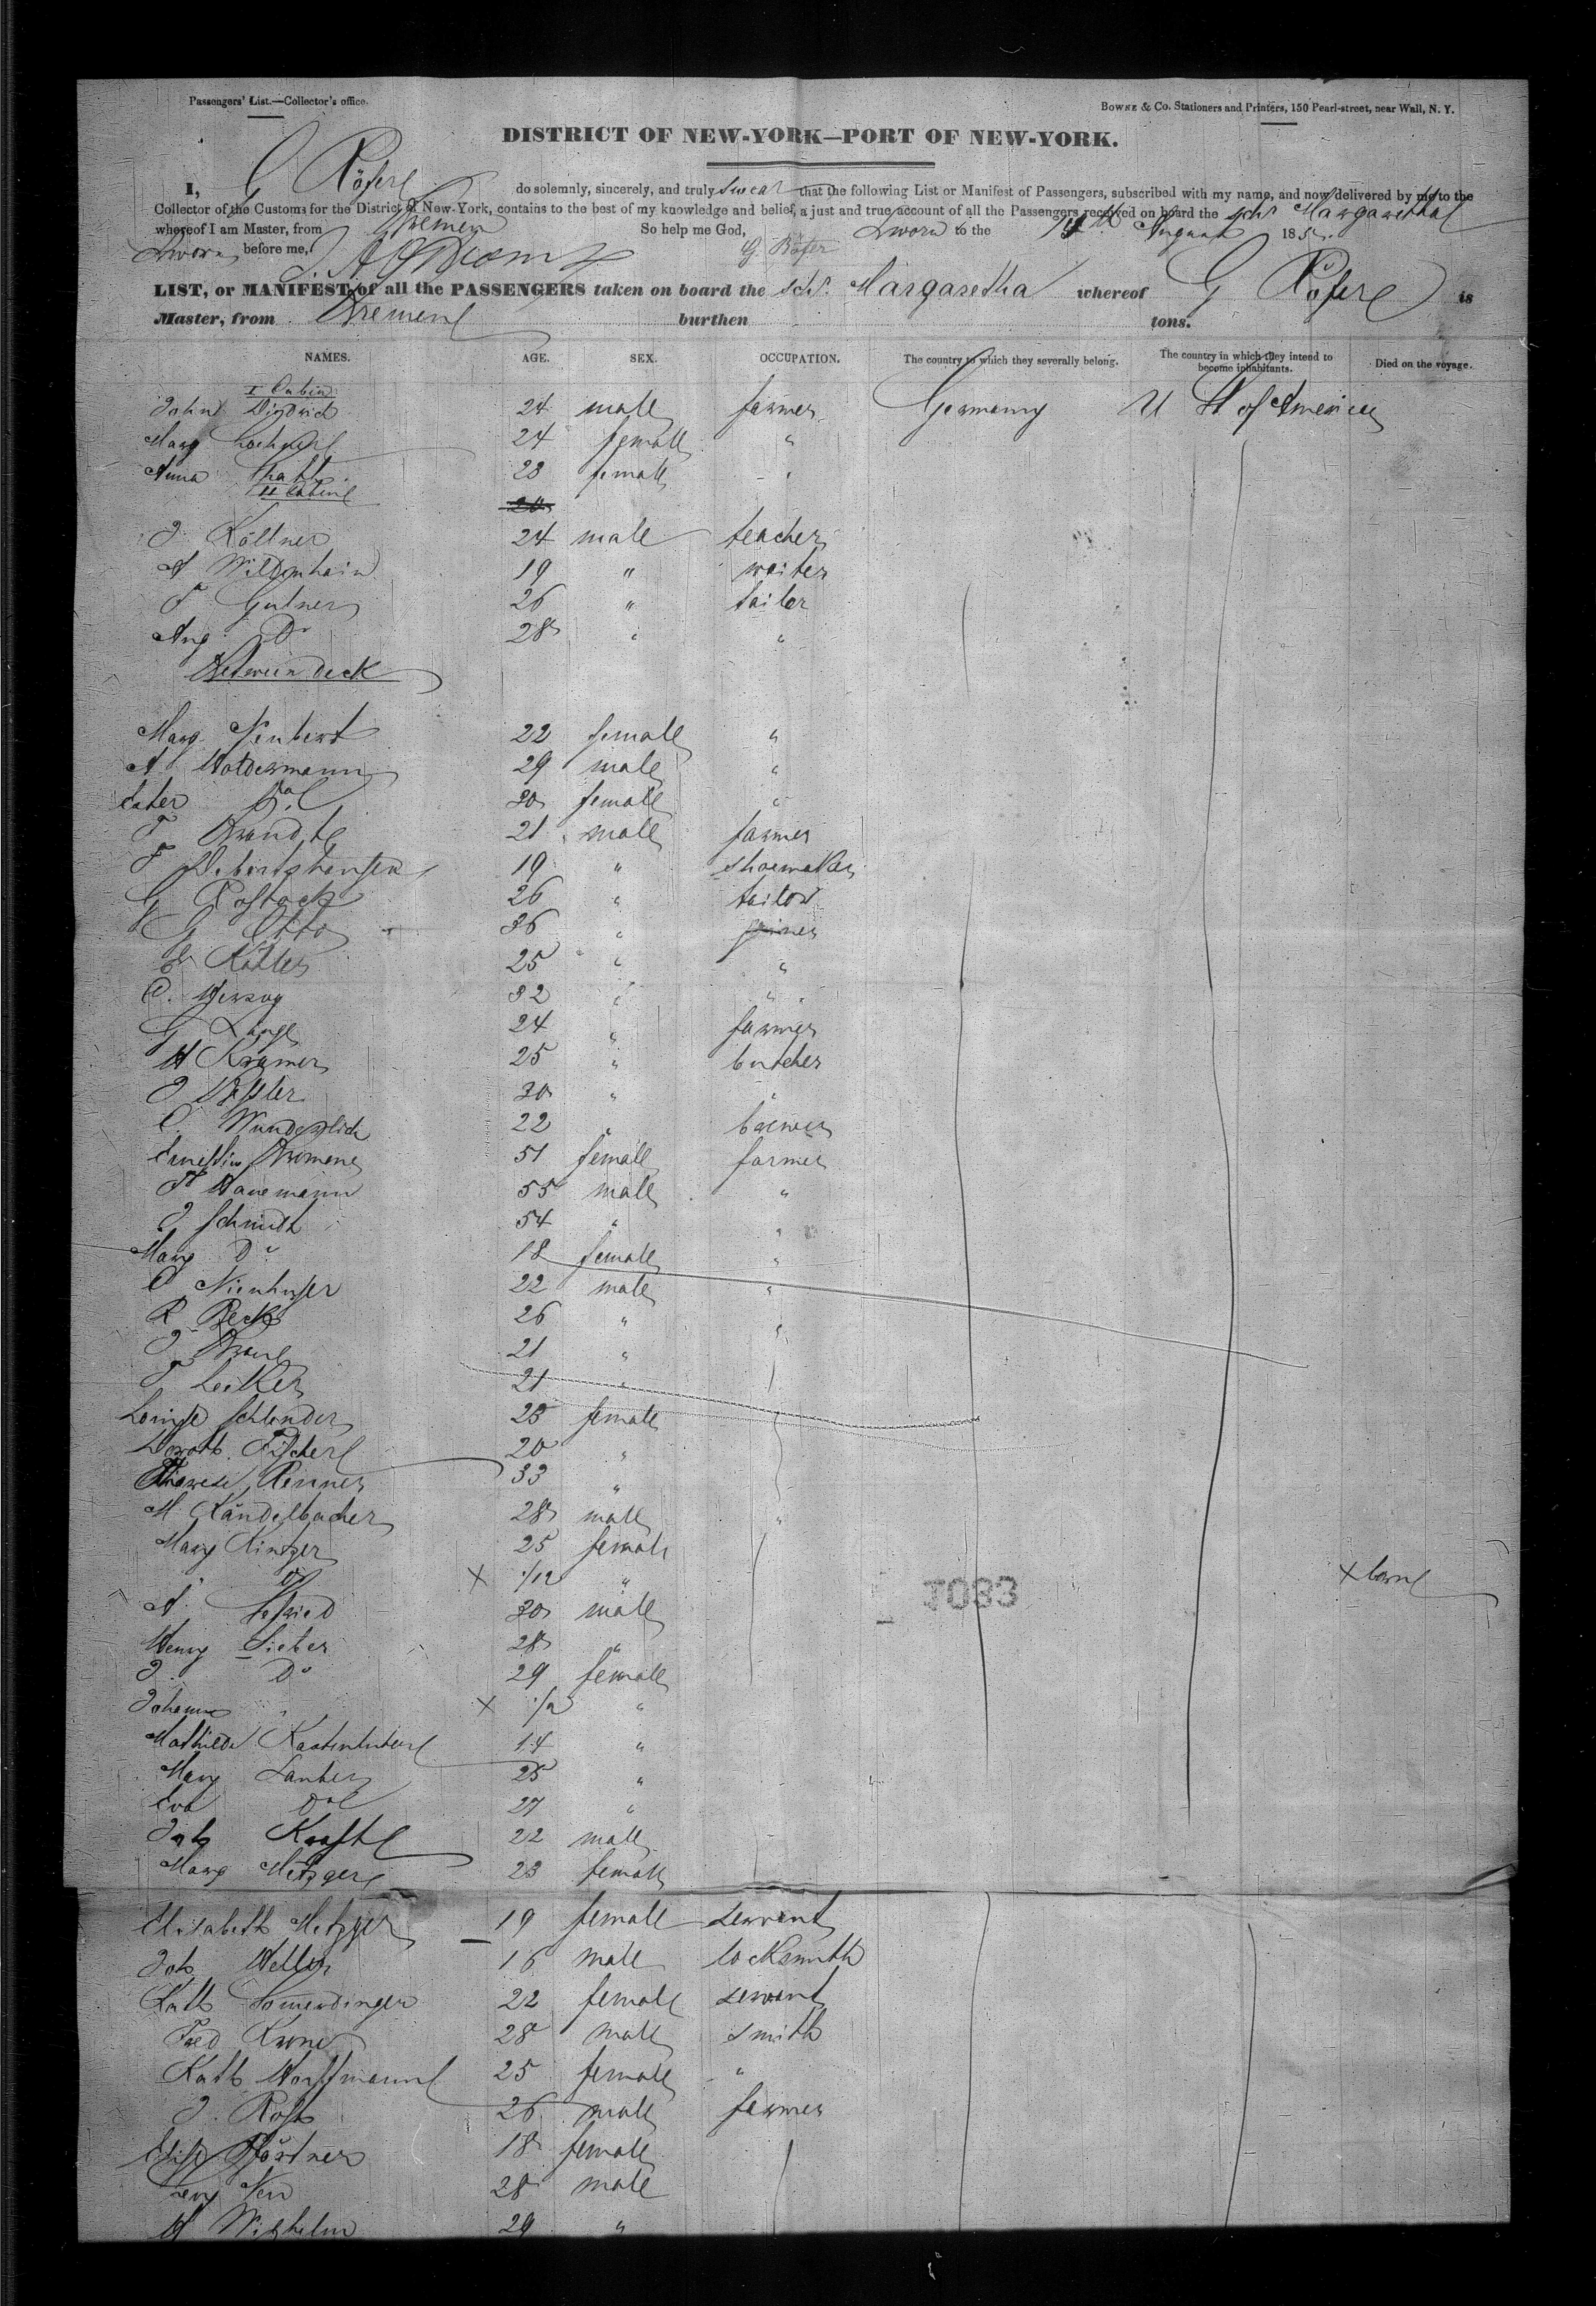 Passengers' List.—Collector's office.
BOWNE & Co. Stationers and Printers, 150 Pearl-street, near Wall, N. Y.
DISTRICT OF NEW-YORK—PORT OF NEW-YORK.
I, G Röfer do solemnly, sincerely, and truly swear that the following List or Manifest of Passengers, subscribed with my name, and now delivered by me to the
Collector of the Customs for the District of New-York, contains to the best of my knowledge and belief, a just and true account of all the Passengers received on board the schr Margaretha
whereof I am Master, from Bremen So help me God, Sworn to the 14th August 185
Sworn before me, G. Röfer
LIST, or MANIFEST, of all the PASSENGERS taken on board the schr. Margaretha whereof G Röfer is
Master, from Bremen burthen tons.
NAMES. AGE. SEX. OCCUPATION. The country to which they severally belong. The country in which they intend to become inhabitants. Died on the voyage.
I Cabin
John Digdrich 24 male farmer Germany U St of America
Mary 24 female "
Anna 23 female "
II Cabin
20
J Költner 24 male teacher
A Wildenhain 19 " waiter
F Gutner 26 " tailor
Aug Do 28 " "
Between deck
Marg Neubert 22 female "
A Woldermann 29 male "
Do 30 female "
F Brandt 21 male farmer
F 19 " shoemaker
G Rostock 26 " tailor
G Otto 36 " joiner
Köhler 25 " "
C. Herzog 32 " "
G Lange 24 " farmer
H Kramer 25 " butcher
J 30 " "
C. Wunderlich 22 " brewer
Ernestine 51 female farmer
Hanemann 55 male "
J Schmidt 54 " "
Mary Do 18 female "
C Nienhuser 22 male "
R Beck 26 " "
J 21 "
F 21 "
Louise Schlender 23 female
Doroth. Fischer 20 "
Therese Renner 33 "
M Kändelbacher 28 male "
Mary Kintzer 25 female
" Do X 1/12 " X born
A 30 male
1083
Henry Sieber 28 "
J. Do 29 female
Johanne " X 1/2 "
Mathilde 14 "
Mary Lauber 25 "
Eva Do 27 "
Joh Kraft 22 male
Marg Metzger 23 female
Elisabeth Metzger 19 female servant
Joh Weller 16 male locksmith
Kath 22 female servant
Fred Krone 28 male smith
Kath 25 female "
J. Rost 26 male farmer
Elise 18 female
28 male
H Wilhelm 29 "